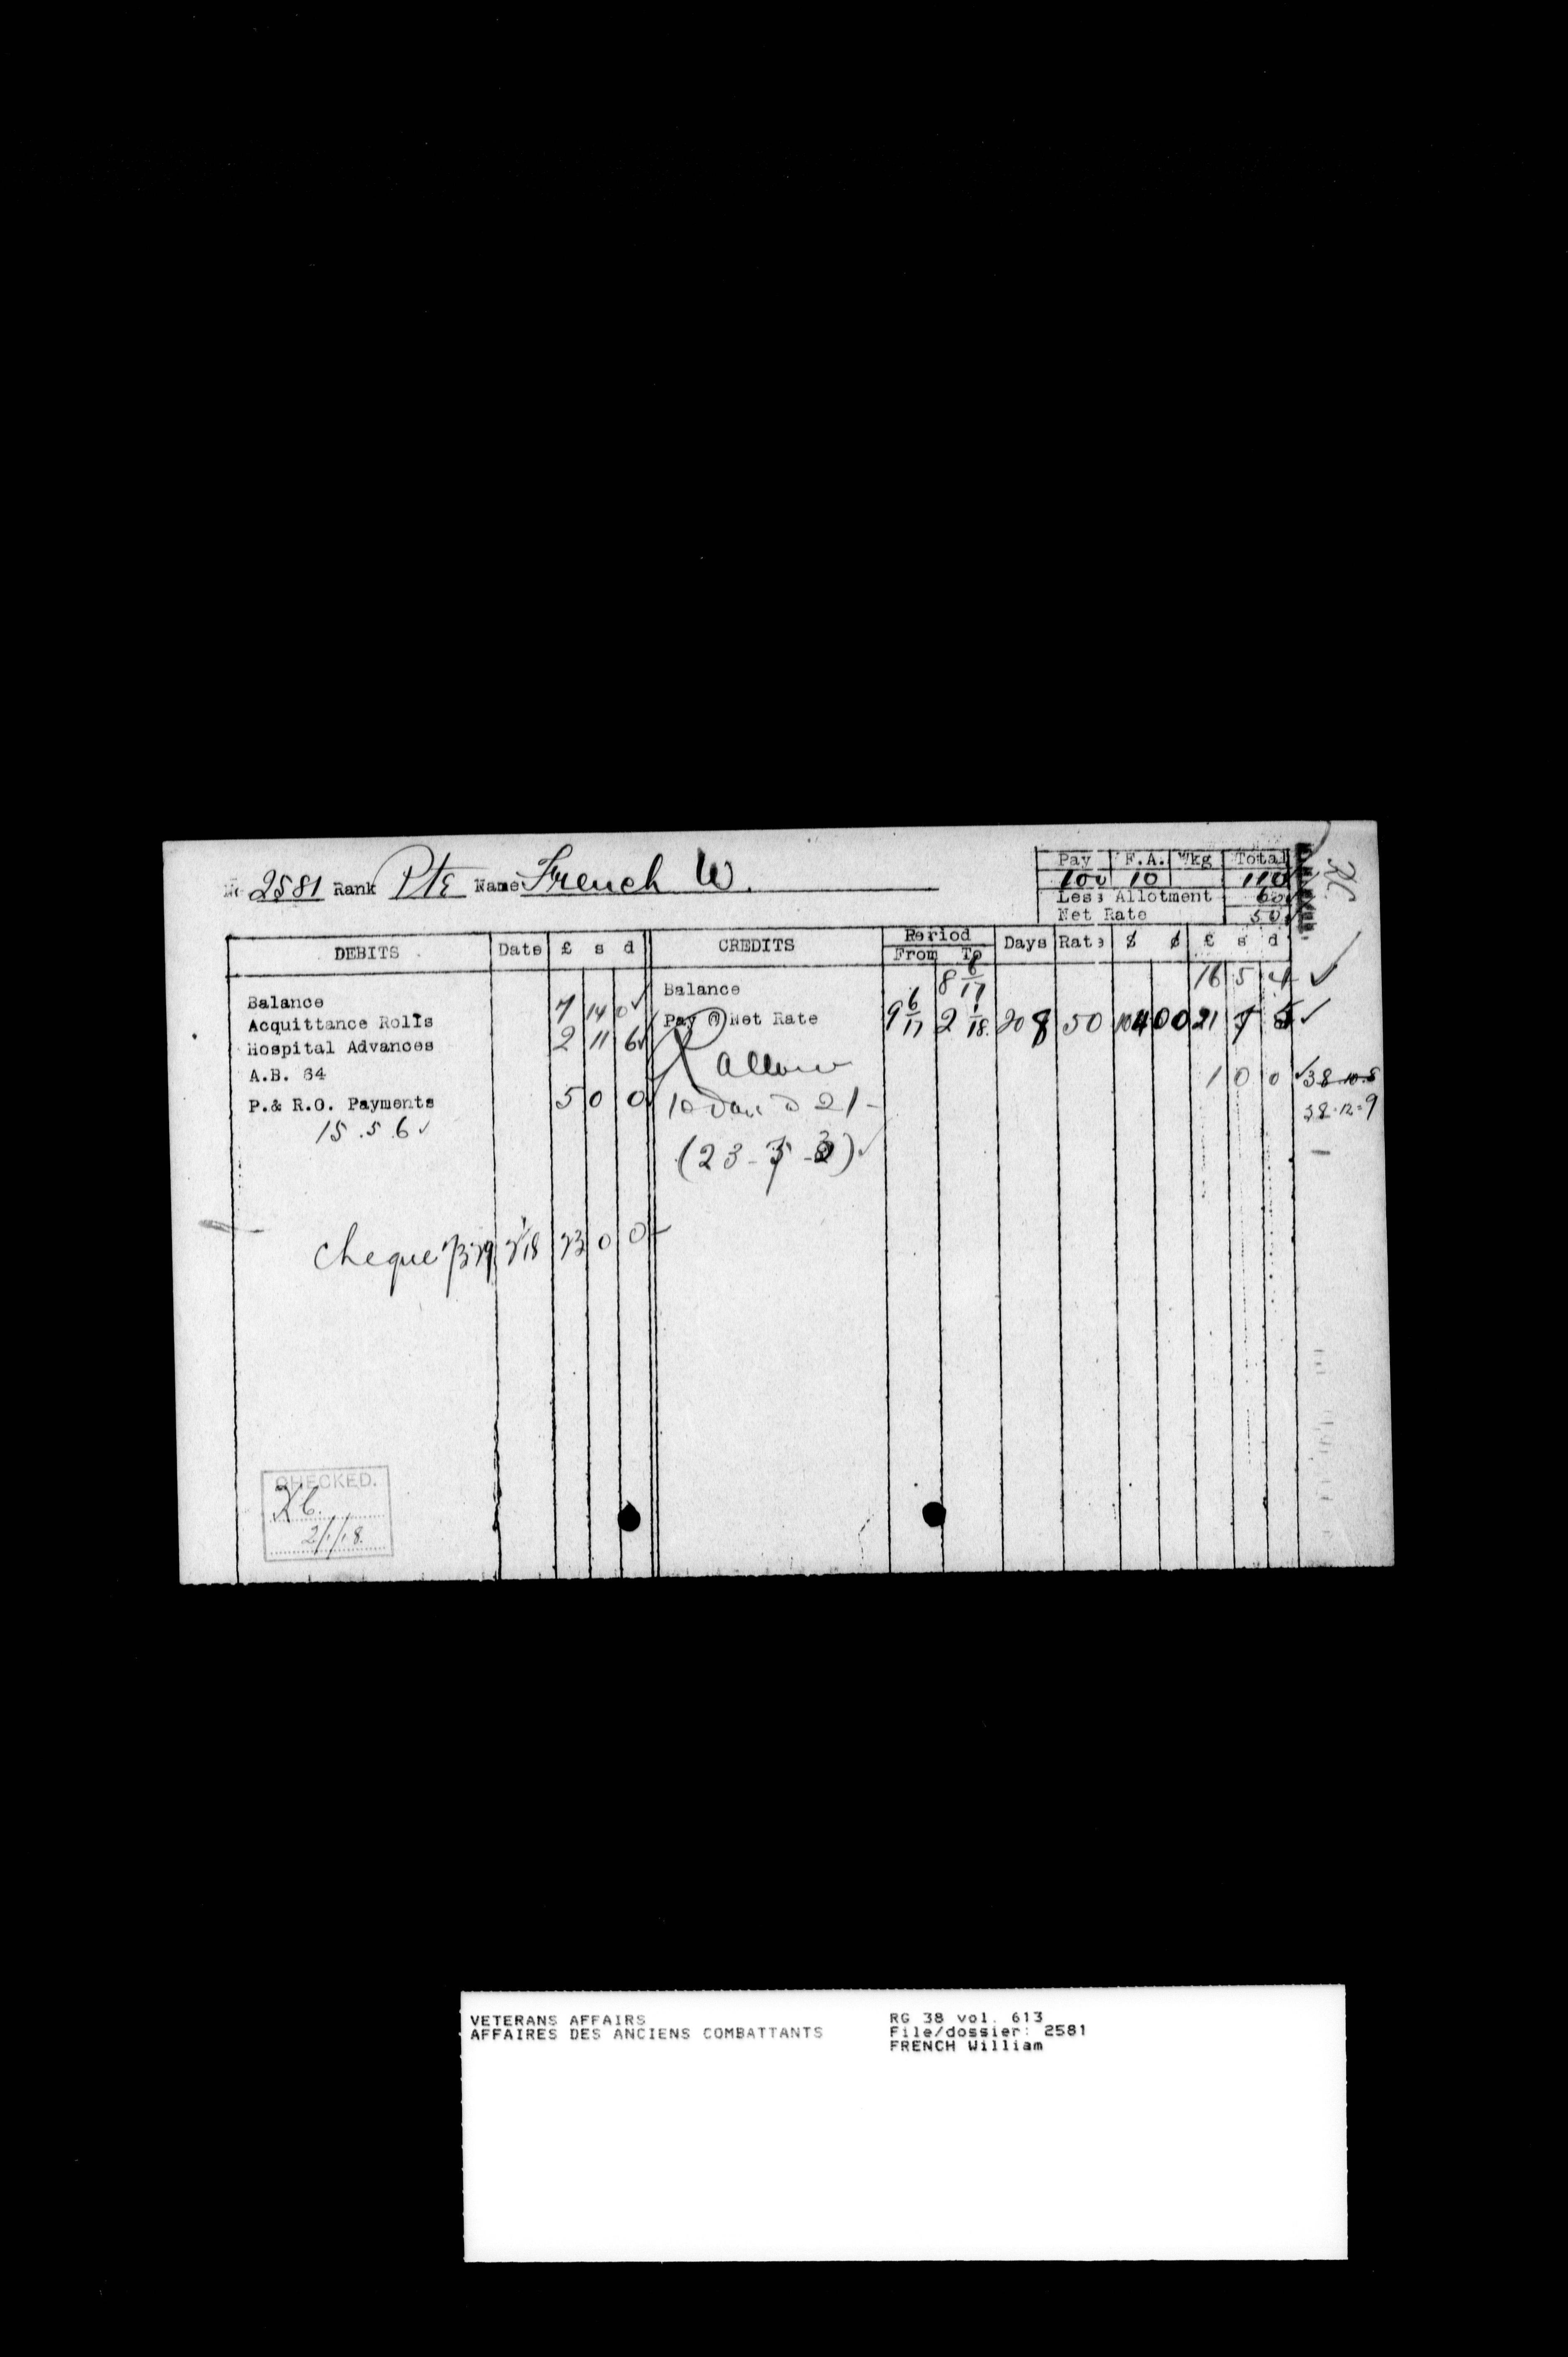 No 2581 Rank Pte Name French W.
Pay F.A. Wkg Total
100 10 110
Less Allotment 60
Net Rate 50
DEBITS Date £ s d CREDITS Period From To Days Rate $ ¢ £ s d
Balance Balance 8 6/17 16 5 4 ✓
Acquittance Rolls 7 14 0 ✓ Pay @ Net Rate 9 6/17 2 1/18 208 50 104 00 21 7 5 ✓
Hospital Advances 2 11 6 ✓
A.B. 64 allow 1 0 0 ✓ 38-10-8
P.& R.O. Payments 5 0 0 ✓ 10 21 - 38-12-9
15.5.6 ✓
(23-7-3) ✓
Cheque 7379 2/1/18 23 0 0
CHECKED.
2/1/18.
VETERANS AFFAIRS RG 38 vol. 613
AFFAIRES DES ANCIENS COMBATTANTS File/dossier: 2581
FRENCH William